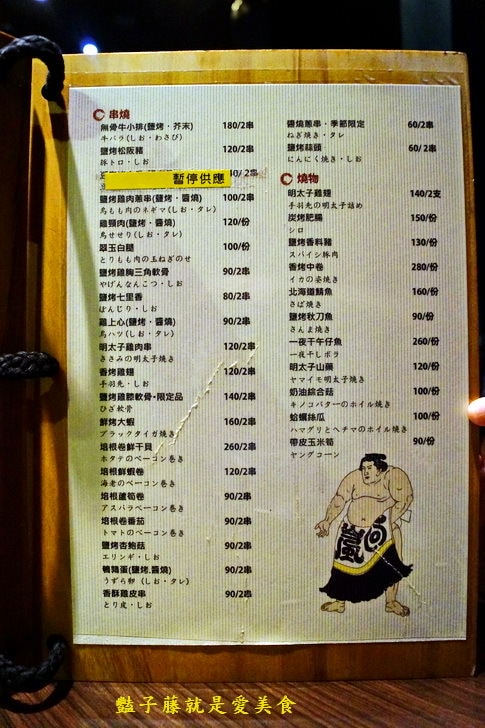 串燒
無骨牛小排(鹽烤・芥末) 180/2串
牛バラ(しお・わさび)
鹽烤松阪豬 120/2串
豚トロ・しお
暫停供應 40/2串
鹽烤雞肉蔥串(鹽烤・醬燒) 100/2串
鳥もも肉のネギマ(しお・タレ)
雞頸肉(鹽烤・醬燒) 120/份
鳥せせり(しお・タレ)
翠玉白腿 100/份
とりもも肉の玉ねぎのせ
鹽烤雞胸三角軟骨 90/2串
やげんなんこつ・しお
鹽烤七里香 80/2串
ぼんじり・しお
雞上心(鹽烤・醬燒) 90/2串
鳥ハツ(しお・タレ)
明太子雞肉串 120/2串
ささみの明太子焼き
香烤雞翅 120/2串
手羽先・しお
鹽烤雞膝軟骨・限定品 140/2串
ひざ軟骨
鮮烤大蝦 160/2串
ブラックタイガ焼き
培根卷鮮干貝 260/2串
ホタテのベーコン巻き
培根鮮蝦卷 120/2串
海老のベーコン巻き
培根蘆筍卷 90/2串
アスパラベーコン巻き
培根卷番茄 90/2串
トマトのベーコン巻き
鹽烤杏鮑菇 90/2串
エリンギ・しお
鵪鶉蛋(鹽烤.醬燒) 90/2串
うずら卵(しお・タレ)
香酥雞皮串 90/2串
とり皮・しお
醬燒蔥串・季節限定 60/2串
ねぎ焼き・タレ
鹽烤蒜頭 60/2串
にんにく焼き・しお
燒物
明太子雞翅 140/2支
手羽先の明太子詰め
炭烤肥腸 150/份
シロ
鹽烤香料豬 130/份
スパイシ豚肉
香烤中卷 280/份
イカの姿焼き
北海道鯖魚 160/份
さば焼き
鹽烤秋刀魚 90/份
さんま焼き
一夜干午仔魚 260/份
一夜干しボラ
明太子山藥 120/份
ヤマイモ明太子焼き
奶油綜合菇 100/份
キノコバターのホイル焼き
蛤蠣絲瓜 100/份
ハマグリとヘチマのホイル焼き
帶皮玉米筍 90/份
ヤングコーン
嵐
豔子藤就是愛美食